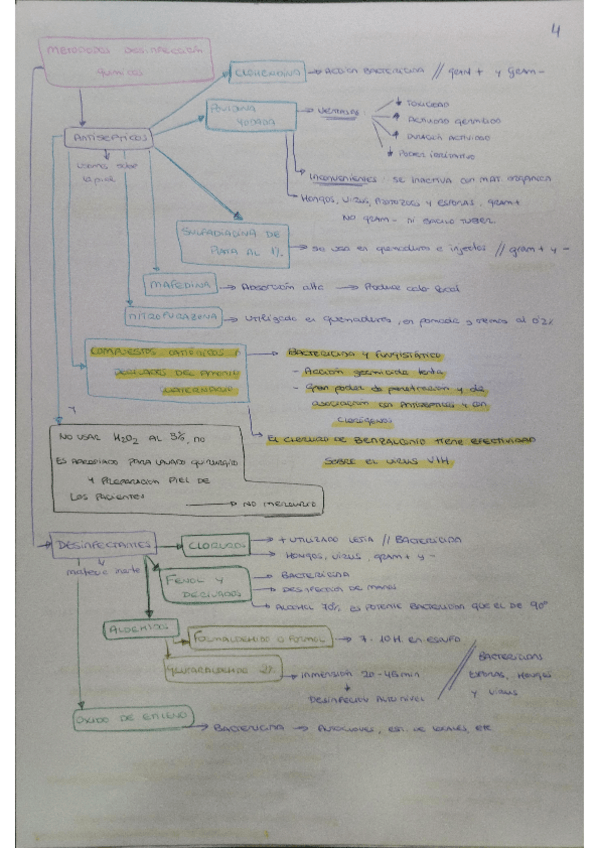 4
METODOS DESINFECCIÓN
QUIMICOS
CLOREXIDINA → ACCION BACTERICIDA // gram + y gram -
POVIDONA
YODADA
VENTAJAS:
↓ TOXICIDAD
ACTIVIDAD GERMICIDA
DURACIÓN ACTIVIDAD
↓ PODER IONIZANTE
ANTISEPTICOS
usamos sobre
la piel
INCONVENIENTES: SE INACTIVA CON MAT. ORGANICA
HONGOS, VIRUS, PROTOZOOS Y ESPORAS. gram +
NO gram - NI BACILO TUBER.
SULFADIADINA DE
PLATA AL 1%
se usa en quemaduras e injertos // gram + y -
MAFEDINA → Absorción alta → Produce calor local
NITROFURAZONA → Utilizado en quemaduras, en pomada o crema al 0'2%
COMPUESTOS CATIÓNICOS Y
DERIVADOS DEL AMONIO
CUATERNARIO
BACTERICIDA Y FUNGISTÁTICO
- Acción germicida lenta
- Gran poder de penetración y de
asociación con ANTISEPTICOS y con
CLORÓGENOS
EL CLORURO DE BENZALCONIO TIENE EFECTIVIDAD
SOBRE EL VIRUS VIH
NO USAR H2O2 AL 3%, no
ES APROPIADO PARA LAVADO QUIRURGICO
Y PREPARACION PIEL DE
LOS PACIENTES → NO MERCURIO
DESINFECTANTES
materia inerte
CLORADOS
+ UTILIZADO LEJIA // BACTERICIDA
HONGOS, VIRUS, gram + y -
FENOL Y
DERIVADOS
BACTERICIDA
DESINFECCION DE MANOS
ALCOHOL 70%, ES POTENTE BACTERICIDA QUE EL DE 90°
ALDEHIDOS
FORMALDEHIDO O FORMOL → 7-10H. EN ESTUFA
GLUTARALDEHIDO 2% → INMERSIÓN 20-45 min
DESINFECCION ALTO NIVEL
BACTERICIDAS
ESPORAS, HONGOS
Y VIRUS
OXIDO DE ETILENO → BACTERICIDA → AUTOCLAVES, EST. DE LOCALES, ETC